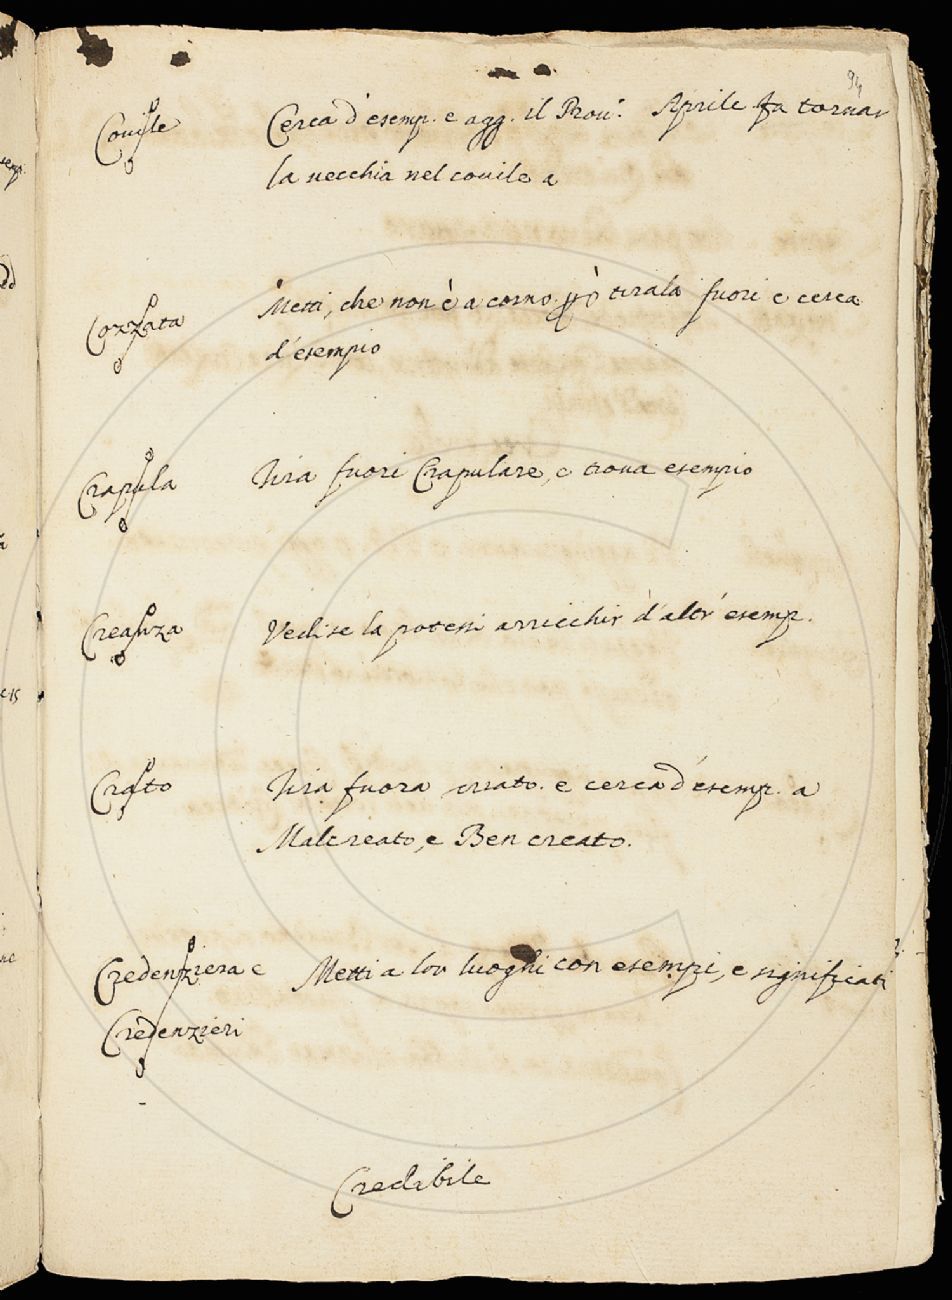 94
Couile Cerca d'esemp. e agg. il Prou: Aprile fa tornar
la uecchia nel couile a
Cozzata Metti, che non è a corno. però tirala fuori e cerca
d'esempio
Crapula Tira fuori Crapulare, e troua esempio
Creanza Vedi se la potessi arricchir d'altr'esemp.
Crato Tira fuora criato. e cerca d'esemp. a
Malcreato, e Ben creato.
Credenziera e Metti a lor luoghi con esempi, e significati
Credenzieri
Credibile